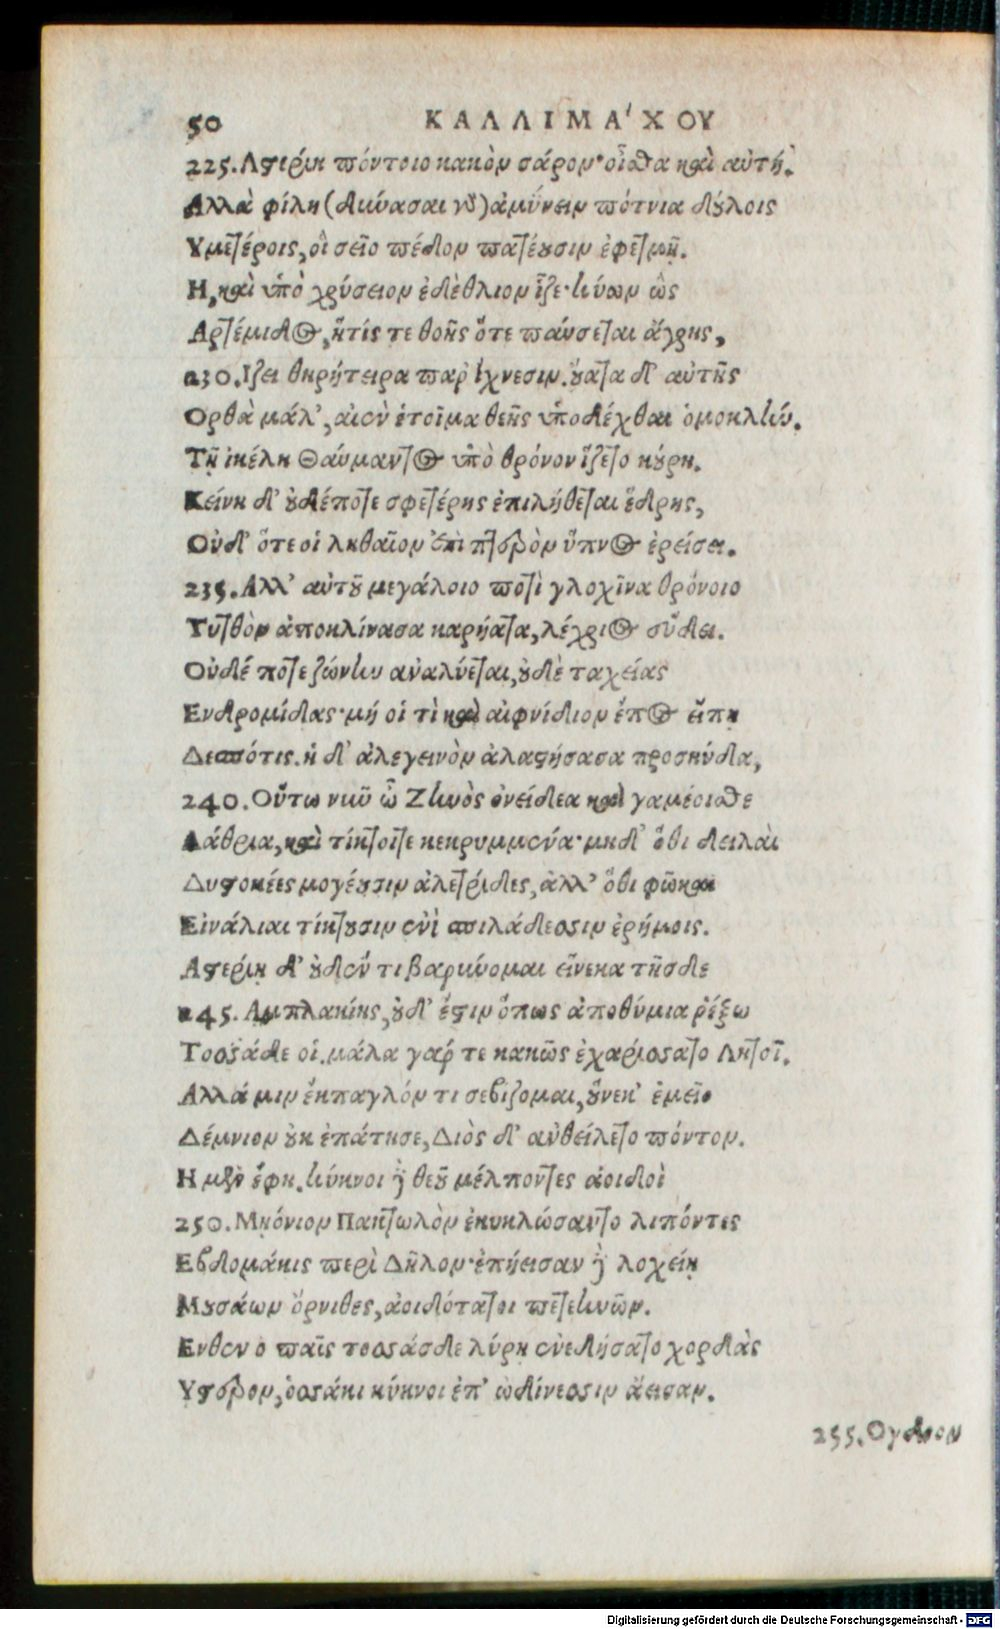 50 ΚΑΛΛΙΜΑ'ΧΟΥ
225. Αστερίη πόντοιο κακὸν σάρον· οἶσθα καὶ αὐτή.
Αλλὰ φίλη (δύνασαι γὰρ) ἀμύνειν πότνια δούλοις
Υμετέροις, οἳ σεῖο πέδον πατέουσιν ἐφετμῇ.
Η, καὶ ὑπὸ χρύσειον ἐδέθλιον ἷζε· κύων ὣς
Αρτέμιδος, ἥτίς τε θοῆς ὅτε παύσεται ἄγρης,
230. Ιζει θηρήτειρα παρ' ἴχνεσιν. οὔατα δ' αὐτῆς
Ορθὰ μάλ', αἰὲν ἑτοῖμα θεῆς ὑποδέχθαι ὁμοκλήν.
Τῇ ἰκέλη Θαύμαντος ὑπὸ θρόνον ἵζετο κούρη.
Κείνη δ' οὐδέποτε σφετέρης ἐπιλήθεται ἕδρης,
Οὐδ' ὅτε οἱ ληθαῖον ἐπὶ πτερὸν ὕπνος ἐρείσει.
235. Αλλ' αὐτοῦ μεγάλοιο ποτὶ γλοχῖνα θρόνοιο
Τυτθὸν ἀποκλίνασα καρήατα, λέχριος εὕδει.
Οὐδέ ποτε ζώνην αναλύεται, οὐδὲ ταχείας
Ενδρομίδας· μή οἱ τὶ καὶ αἰφνίδιον ἔπος εἴπῃ
Δεσπότις. ἡ δ' ἀλεγεινὸν ἀλαστήσασα προσηύδα,
240. Οὕτω νῦν ὦ Ζηνὸς ὀνείδεα καὶ γαμέοισθε
Λάθρια, καὶ τίκτοιτε κεκρυμμένα· μηδ' ὅθι δειλαὶ
Δυστοκέες μογέουσιν ἀλετρίδες, ἀλλ' ὅθι φῶκαι
Εἰνάλιαι τίκτουσιν ἐνὶ σπιλάδεσσιν ἐρήμοις.
Αστερίῃ δ' οὐδέν τι βαρύνομαι εἵνεκα τῆσδε
245. Αμπλακίης, οὐδ' ἔστιν ὅπως ἀποθύμια ῥέξω
Τοσσάδε οἱ. μάλα γάρ τε κακῶς ἐχαρίσσατο Λητοῖ.
Αλλά μιν ἔκπαγλόν τι σεβίζομαι, οὕνεκ' ἐμεῖο
Δέμνιον οὐκ ἐπάτησε, Διὸς δ' ανθείλετο πόντον.
Η μὲν ἔφη. κύκνοι δὲ θεοῦ μέλποντες ἀοιδοὶ
250. Μῃόνιον Πακτωλὸν ἐκυκλώσαντο λιπόντες
Εβδομάκις περὶ Δῆλον· ἐπήεισαν δὲ λοχείῃ
Μουσάων ὄρνιθες, ἀοιδότατοι πετεηνῶν.
Ενθεν ὁ παῖς τοσσάσδε λύρῃ ἐνεδήσατο χορδὰς
Υστερον, ὁσσάκι κύκνοι ἐπ' ὠδίνεσσιν ἄεισαν.
255. Ογδοον
Digitalisierung gefördert durch die Deutsche Forschungsgemeinschaft - DFG